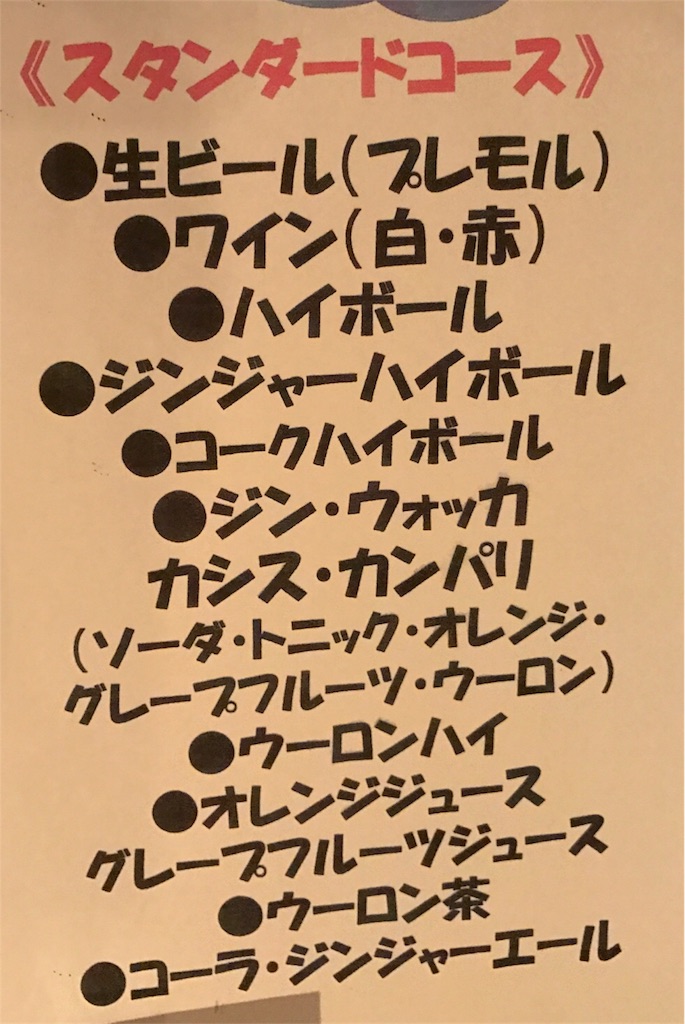 《スタンダードコース》
●生ビール(プレモル)
●ワイン(白・赤)
●ハイボール
●ジンジャーハイボール
●コークハイボール
●ジン・ウォッカ
カシス・カンパリ
(ソーダ・トニック・オレンジ・
グレープフルーツ・ウーロン)
●ウーロンハイ
●オレンジジュース
グレープフルーツジュース
●ウーロン茶
●コーラ・ジンジャーエール